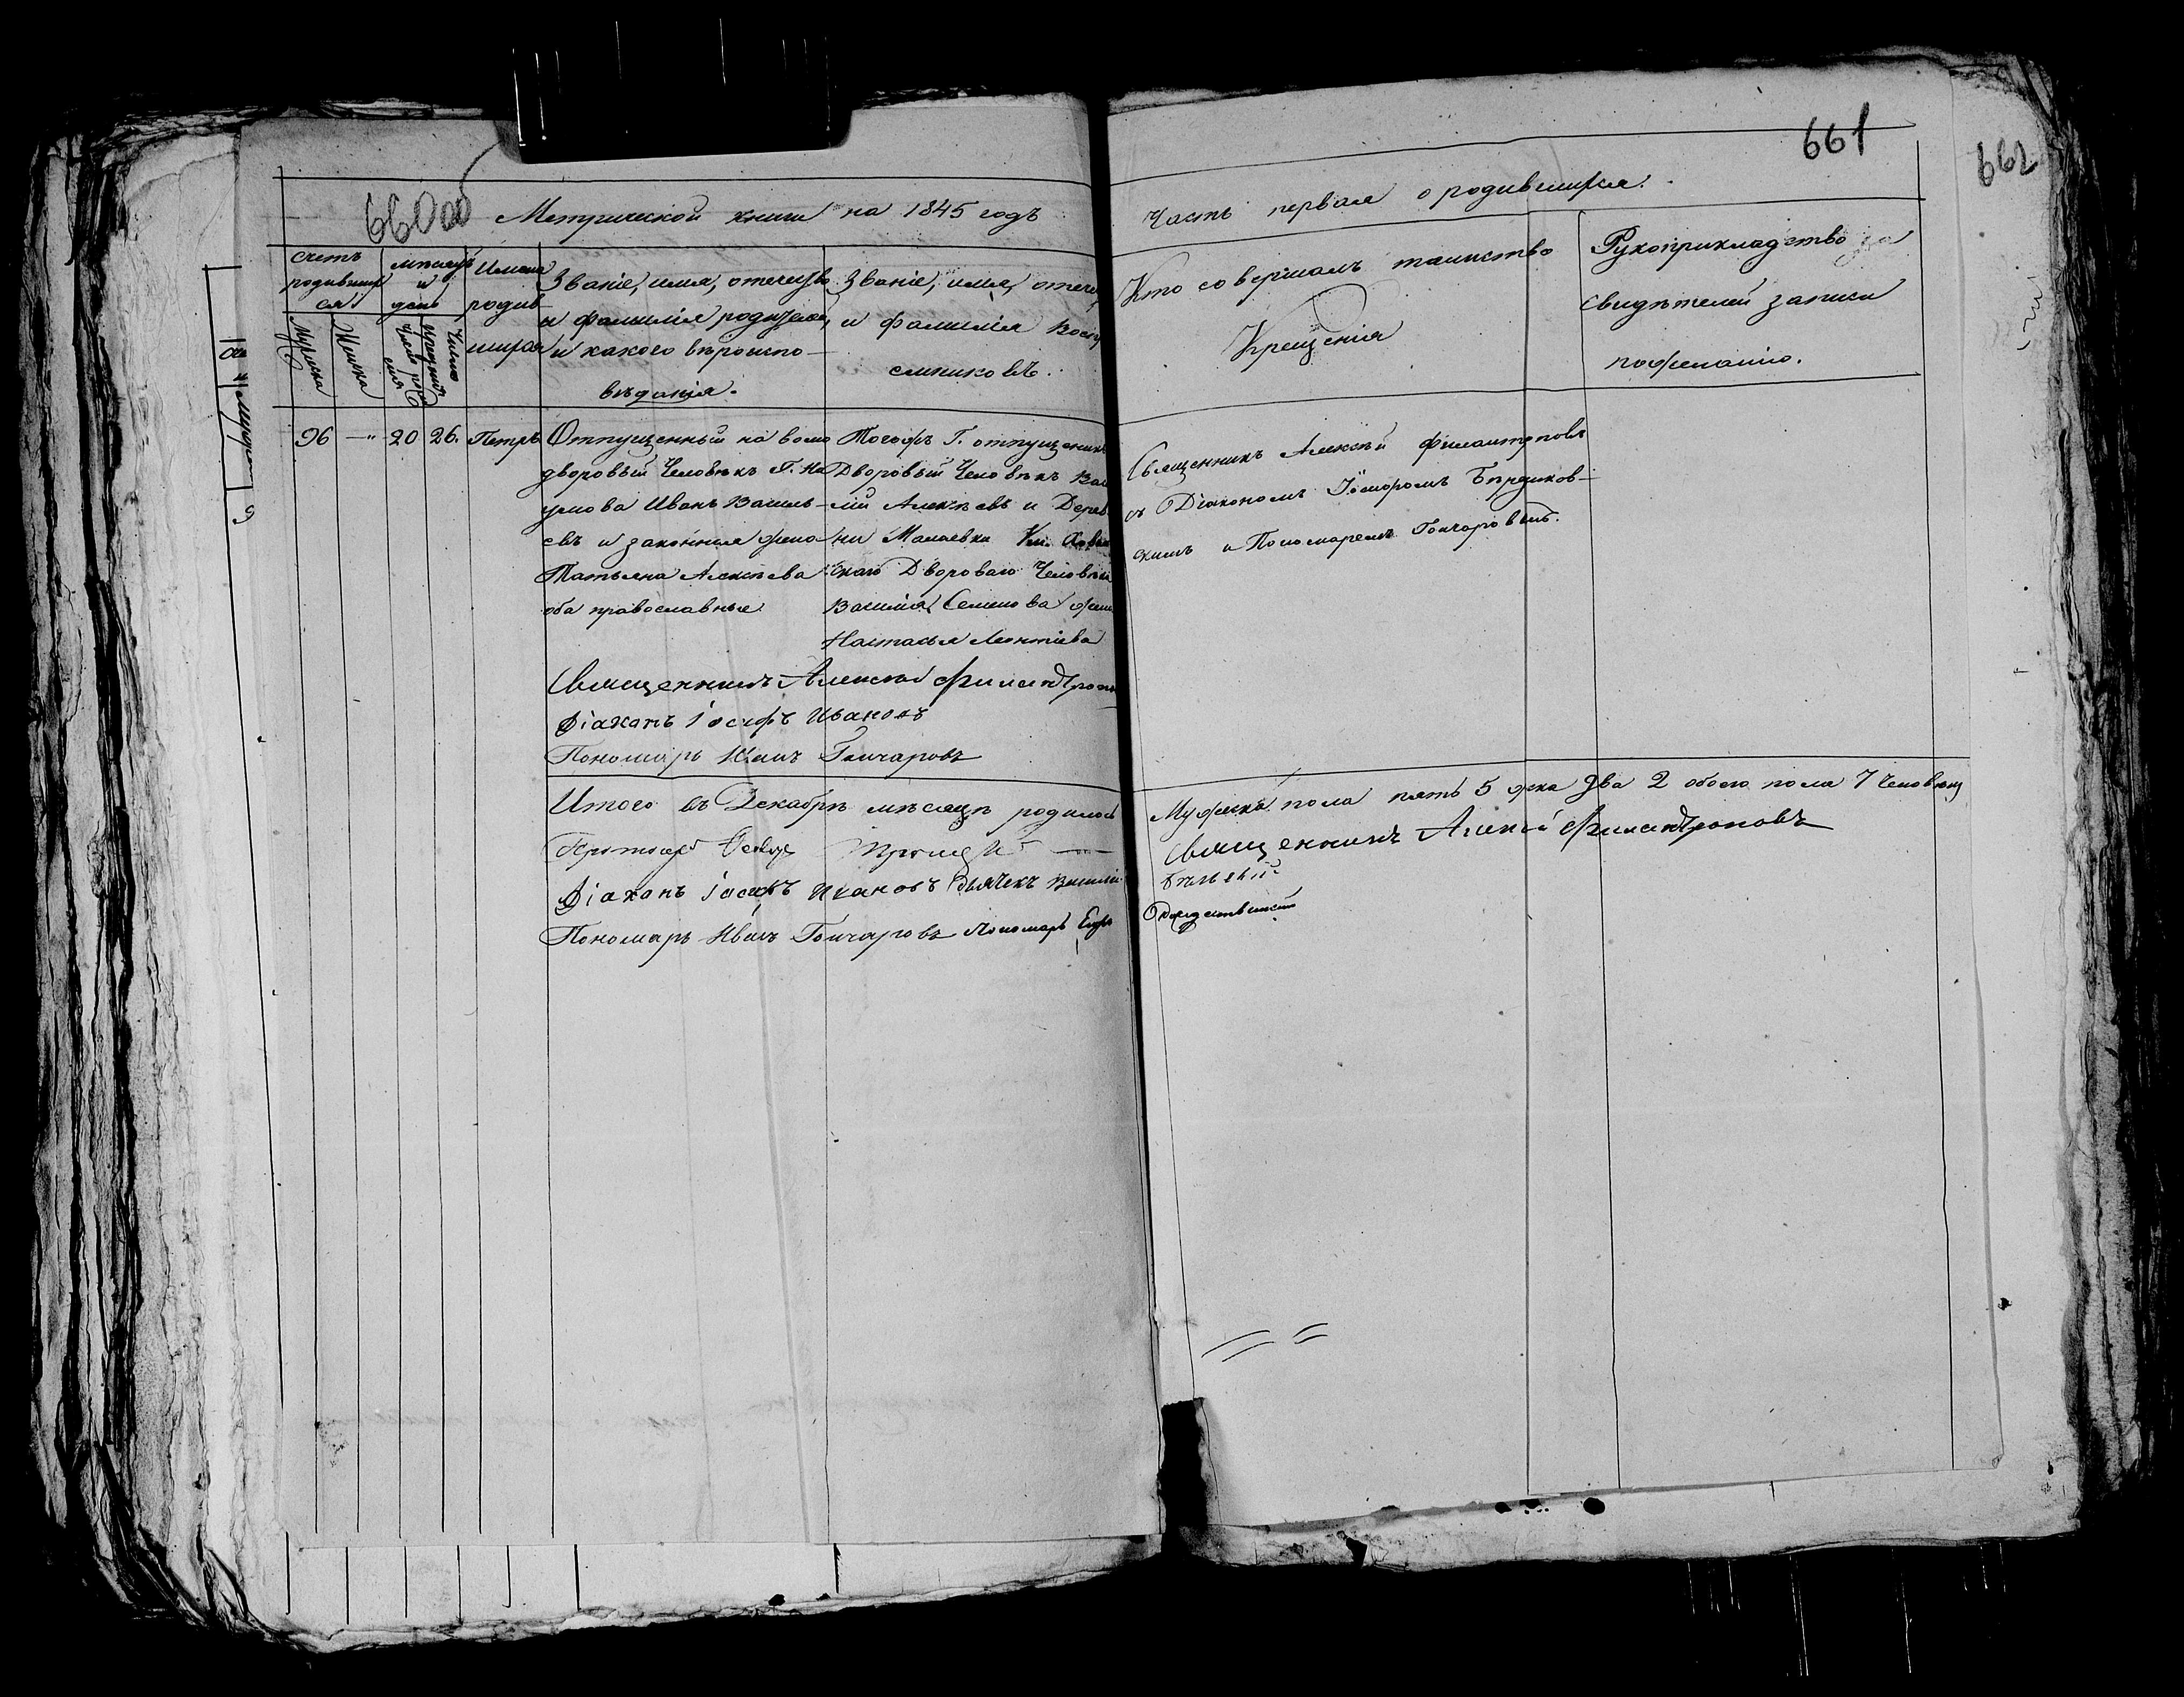 661
662
660об
Метрической книги на 1845 годъ
Часть первая о родившихся.
счетъ родившихся
Мужска
Женска
мѣсяцъ и день
Число рожденія
Число крещенія
Имена родившихся
Званіе, имя, отечество
и фамилія родителей,
и какого вѣроиспо-
вѣданія.
Званіе, имя, отечес
и фамилія Воспр
емниковъ.
Кто совершалъ таинство
Крещенія
Рукоприкладство
свидѣтелей записи
по желанію.
96 —"— 20 26. Петръ
Отпущенный на волю
дворовый Человѣкъ Г. На
умова Иванъ Василь-
евъ и законная жена
Татьяна Алексѣева
оба православные
Тогожъ Г. отпущенный
Дворовый Человѣкъ Вас
лій Алексѣевъ и Дерев
ни Малаевки Кн.
скаго Двороваго Человѣка
Василія Семенова жена
Настасья Леонтіева
Священникъ Алексѣй Филантроповъ
съ Діакономъ
скимъ и Пономаремъ Гончаровымъ.
Священникъ Алексѣй Филантропов
Діаконъ Іосифъ Ивановъ
Пономарь Иванъ Гончаровъ
Итого въ Декабрѣ мѣсяцѣ родилось
Мужеска пола пять 5 женска два 2 обоего пола 7 Человѣкъ
Священникъ Алексѣй Филантроповъ
Діаконъ Іосифъ Ивановъ дьячекъ Василій
Пономарь Иванъ Гончаровъ Пономарь